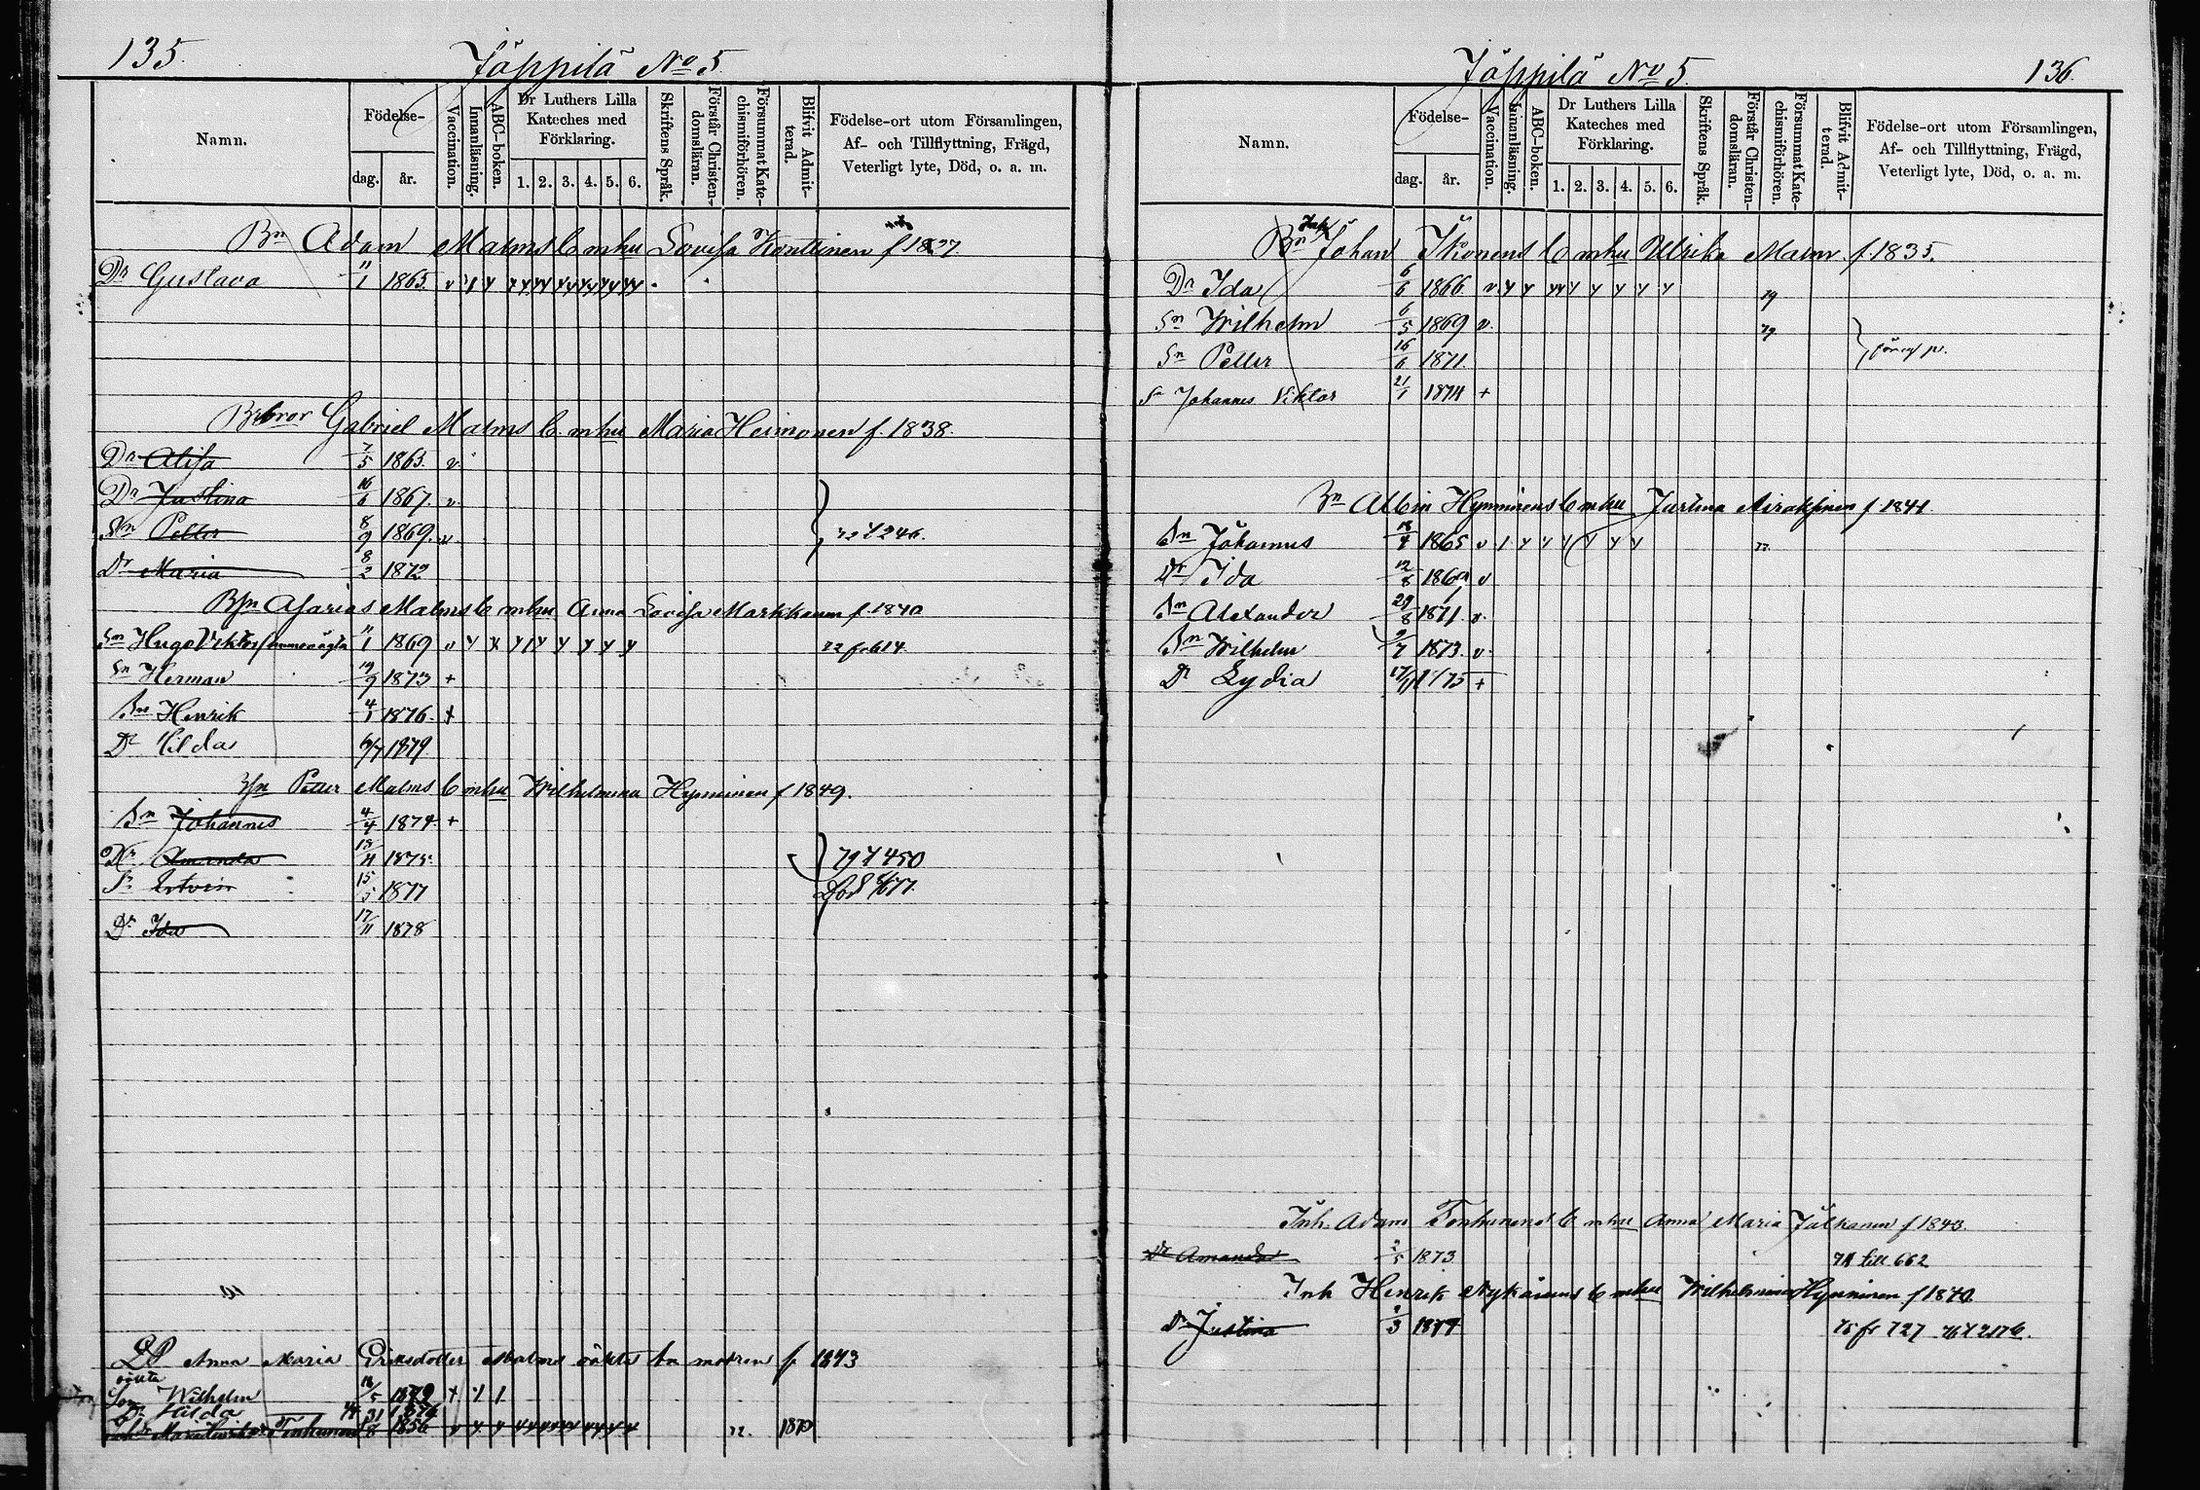 135.
Jäppilä No 5.
Namn.
Födelse-
dag.
år.
Vaccination.
Innanläsning.
ABC-boken.
Dr Luthers Lilla
Kateches med
Förklaring.
1. 2. 3. 4. 5. 6.
Skriftens Språk.
Förstår Christen-
domsläran.
Försummat Kate-
chismiförhören.
Blifvit Admit-
terad.
Födelse-ort utom Församlingen,
Af- och Tillflyttning, Frägd,
Veterligt lyte, Död, o. a. m.
Bn Adam Malms b mhu Lovisa Konttinen f 1837.
Dr Gustava 11/1 1865. v
Gabriel Malms b. mhu Maria Heimonen f. 1838.
Dr Alisa 7/5 1863. v.
Dr Justina 16/6 1867. v.
Sn Petter 8/9 1869. v
Dr Maria 8/2 1872
Asarias Malms b mhu Anna Lovisa Markkanen f. 1840
Sn Hugo Viktor 11/1 1869 v
Sn Herman 19/9 1873 +
Sn Henrik 4/1 1876. +
Dr Hilda 6/7 1879.
Petter Malms b mhu Wilhelmina Hynninen f 1849.
Sn Johannes 4/4 1874. +
Dr Amanda 1875.
79 t 450
Sn 15/5 1877
Död
Dr Ida 17/11 1878
Anna Maria Eriksdotter Malms oäkta bn modren f. 1843
oäkta
Son Wilhelm 16/5 1879 +
Dr Hilda
1856 v 1870
Jäppilä No 5.
136.
Namn.
Födelse-
dag.
år.
Vaccination.
Innanläsning.
ABC-boken.
Dr Luthers Lilla
Kateches med
Förklaring.
1. 2. 3. 4. 5. 6.
Skriftens Språk.
Förstår Christen-
domsläran.
Försummat Kate-
chismiförhören.
Blifvit Admit-
terad.
Födelse-ort utom Församlingen,
Af- och Tillflyttning, Frägd,
Veterligt lyte, Död, o. a. m.
Bn Johan Ikonens b mhu Ulrika Malm f. 1835.
Dr Ida 6/6 1866 v
Sn Wilhelm 6/5 1869 v.
Sn Petter 16/6 1871.
Sn Johannes Viktor 21/1 1874 +
Bn Albin Hynninens b mhu Justina Airaksinen f 1841.
Sn Johannes 1865 v
Dr Ida 12/8 1869 v
Sn Alexander 29/8 1871. v.
Sn Wilhelm 1873. v.
Dr Lydia
Inh. Adam Tenhunens b mhu Anna Maria Jalkanen f 1843.
Dr Amanda 2/5 1873 74 till 662
Inh Henrik Nykänens b mhu Wilhelmina Hynninen f 1840.
Dr Justina 1874 75 fr 727